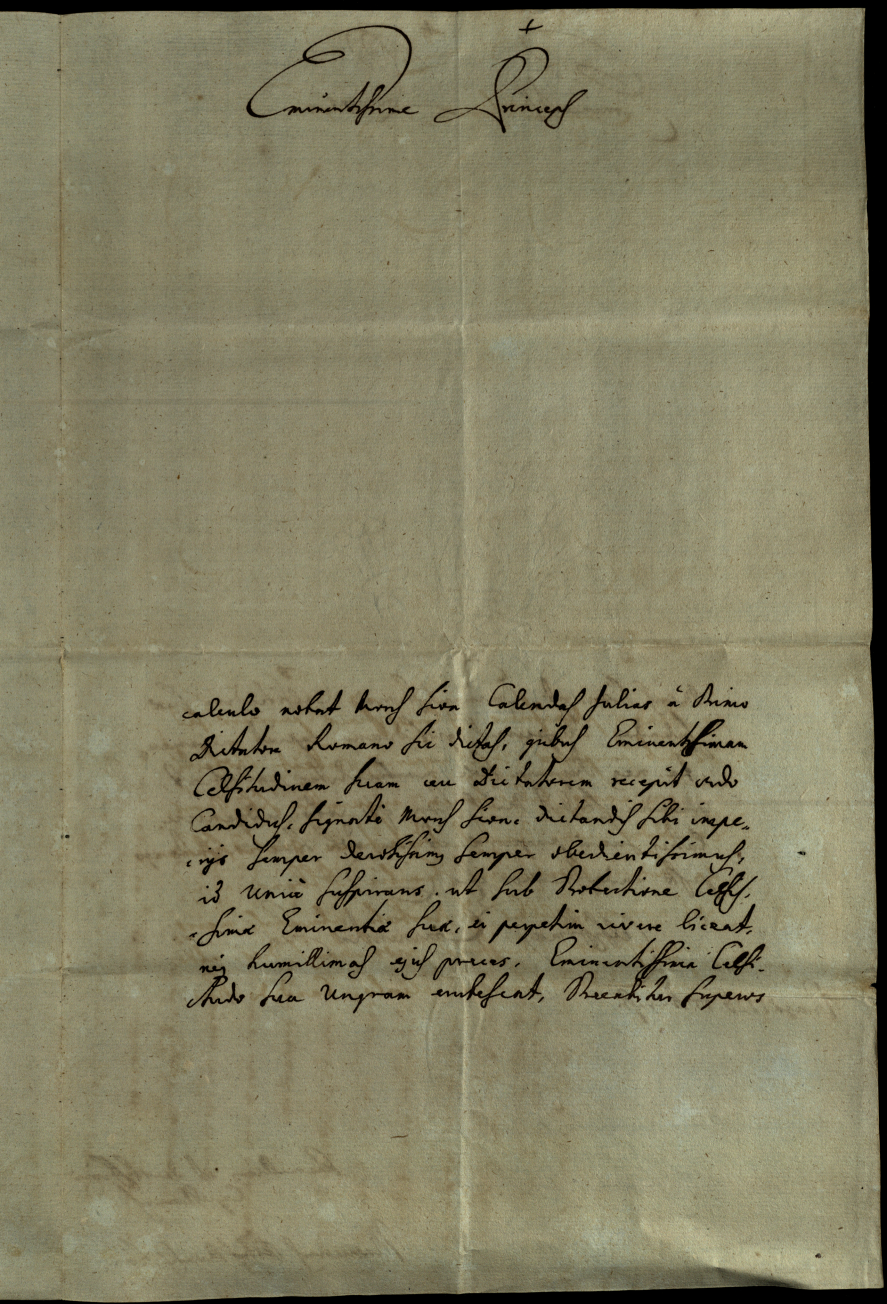 +
Eminentissime Princeps
calculo notat Mons Sion Calendas Julias à Primo
Dictatore Romano sic dictas, quibus Eminentissimam
Celsitudinem suam ceu Dictatorem recepit ordo
Candidus, signantè Mons Sion, dictandis sibi impe-
rijs semper devotissimus semper obedientissimus,
id unicè suspirans, ut sub Protectione Celsis-
simæ Eminentiæ suæ, ei perpetim vivere liceat,
humillimas ejus preces, Eminentissima Celsi-
tudo sua erubescat,